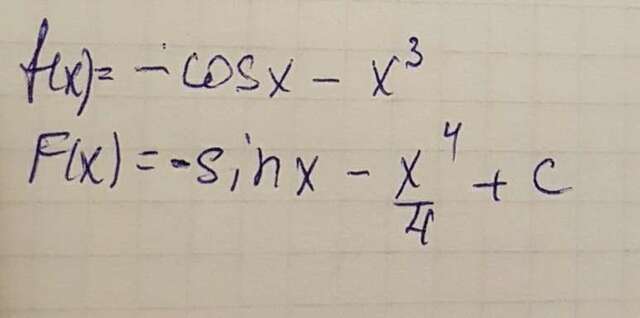 f(x)= -cosx - x³
F(x)= -sinx - x⁴/4 + C